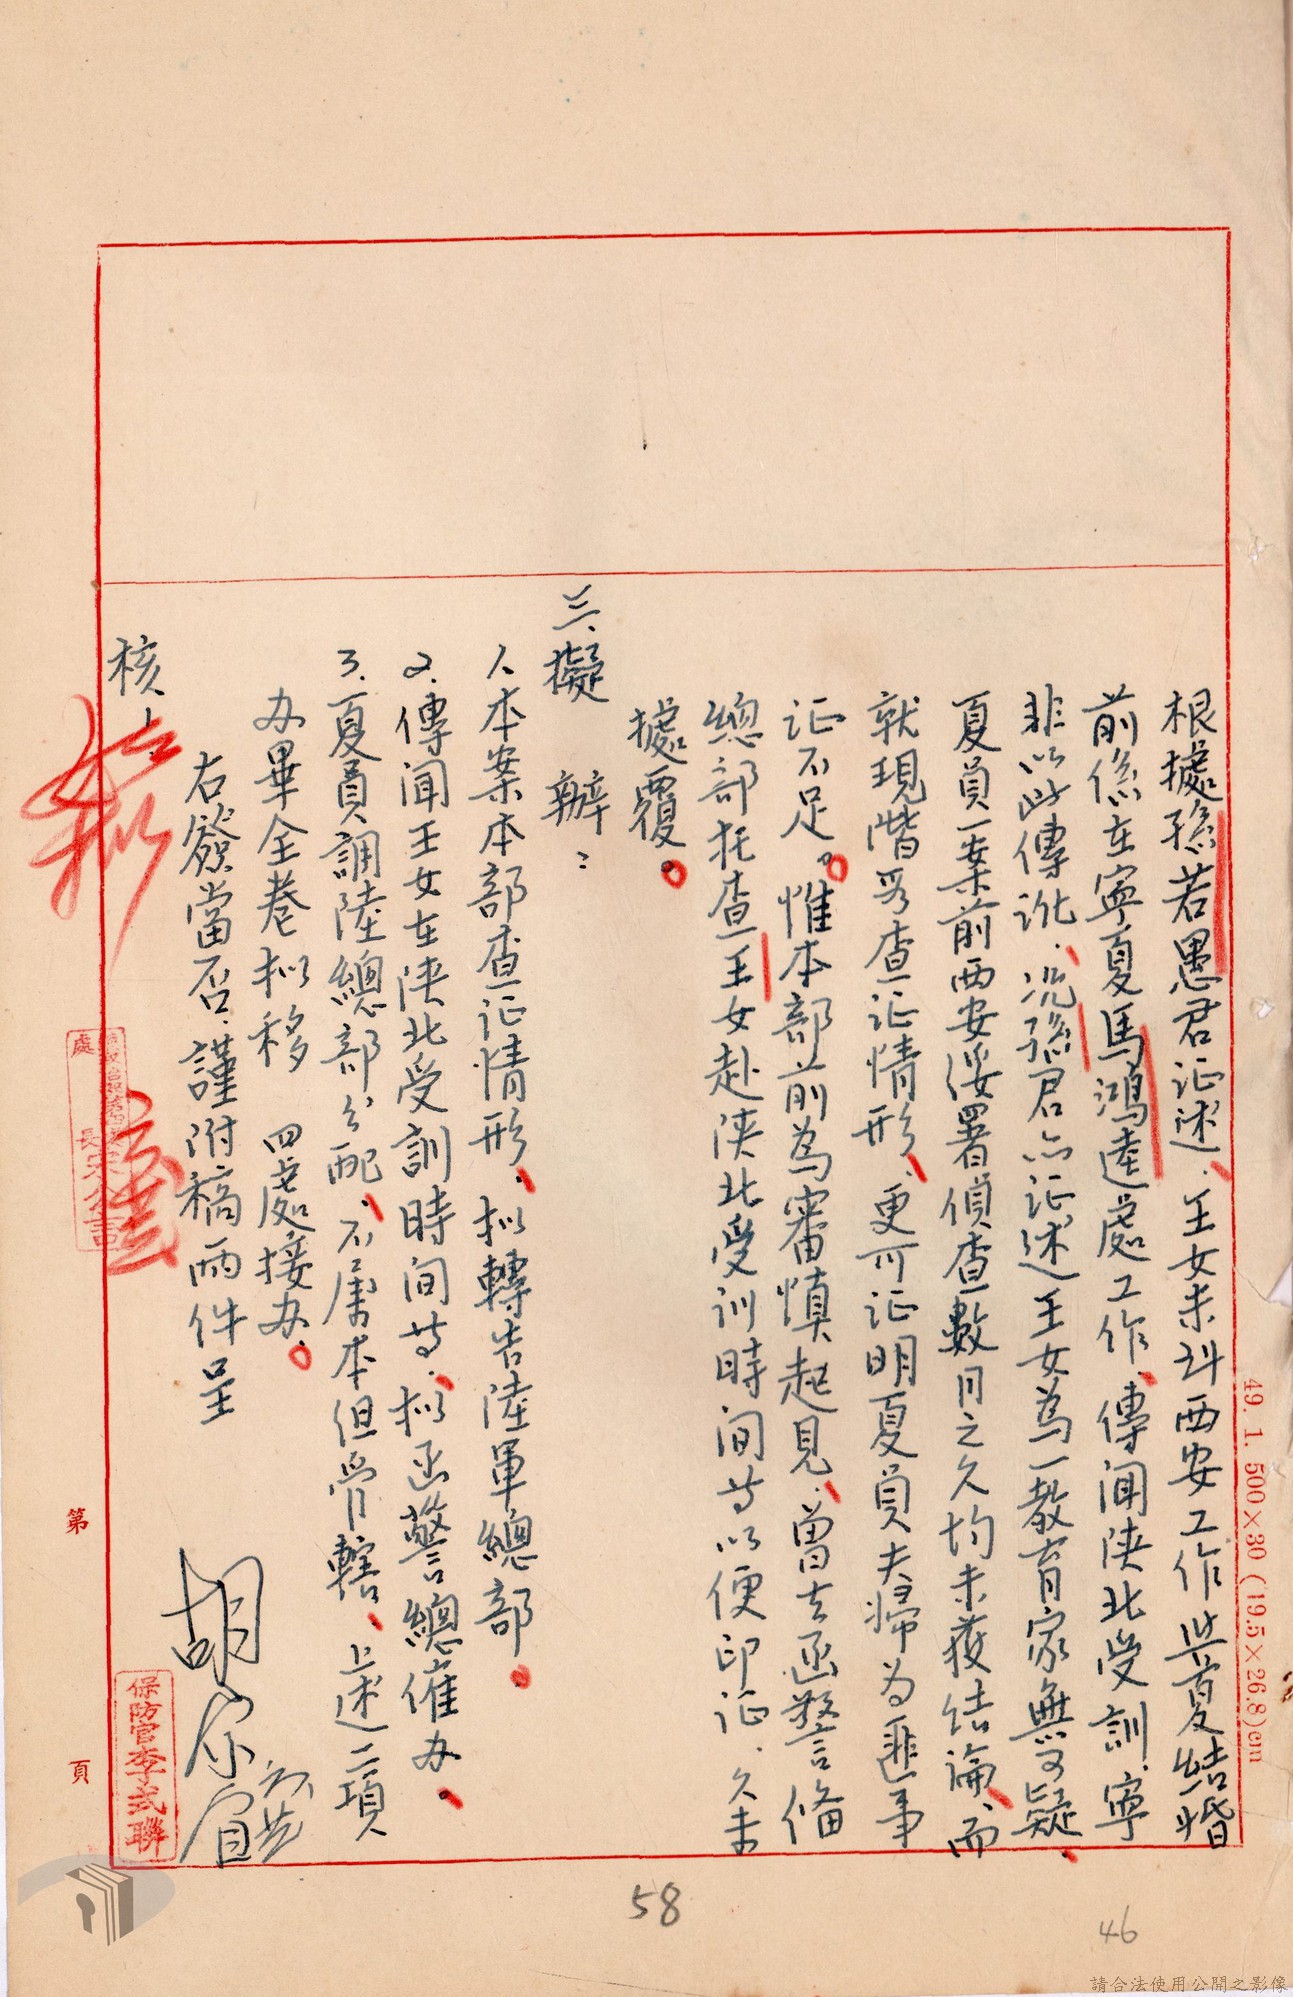 根據孫若愚君証述、王女未到西安工作與夏結婚
前係在寧夏馬鴻逵處工作、傳聞陝北受訓、寧
非以此傳訛、況孫君亦証述王女為一教育家無可疑、
夏員一案前西安綏署偵查數月之久均未獲結論、而
就現階段查证情形、更可证明夏員夫婦为匪事
证不足。惟本部前為審慎起見、曾去函警备
總部託查王女赴陝北受训時间等以便印证、久未
據覆。
三、擬辦：
1、本案本部查证情形、拟轉告陸軍總部。
2、傳聞王女在陝北受訓時间等、拟函警總催办。
3、夏員調陸總部分配、不屬本但管轄、上述二項
办畢全卷拟移 四處接办。
右簽當否、謹附稿兩件呈
核、
保防官李式聯
第 頁
49. 1. 500×30 (19.5×26.8)cm
58
46
請合法使用公開之影像